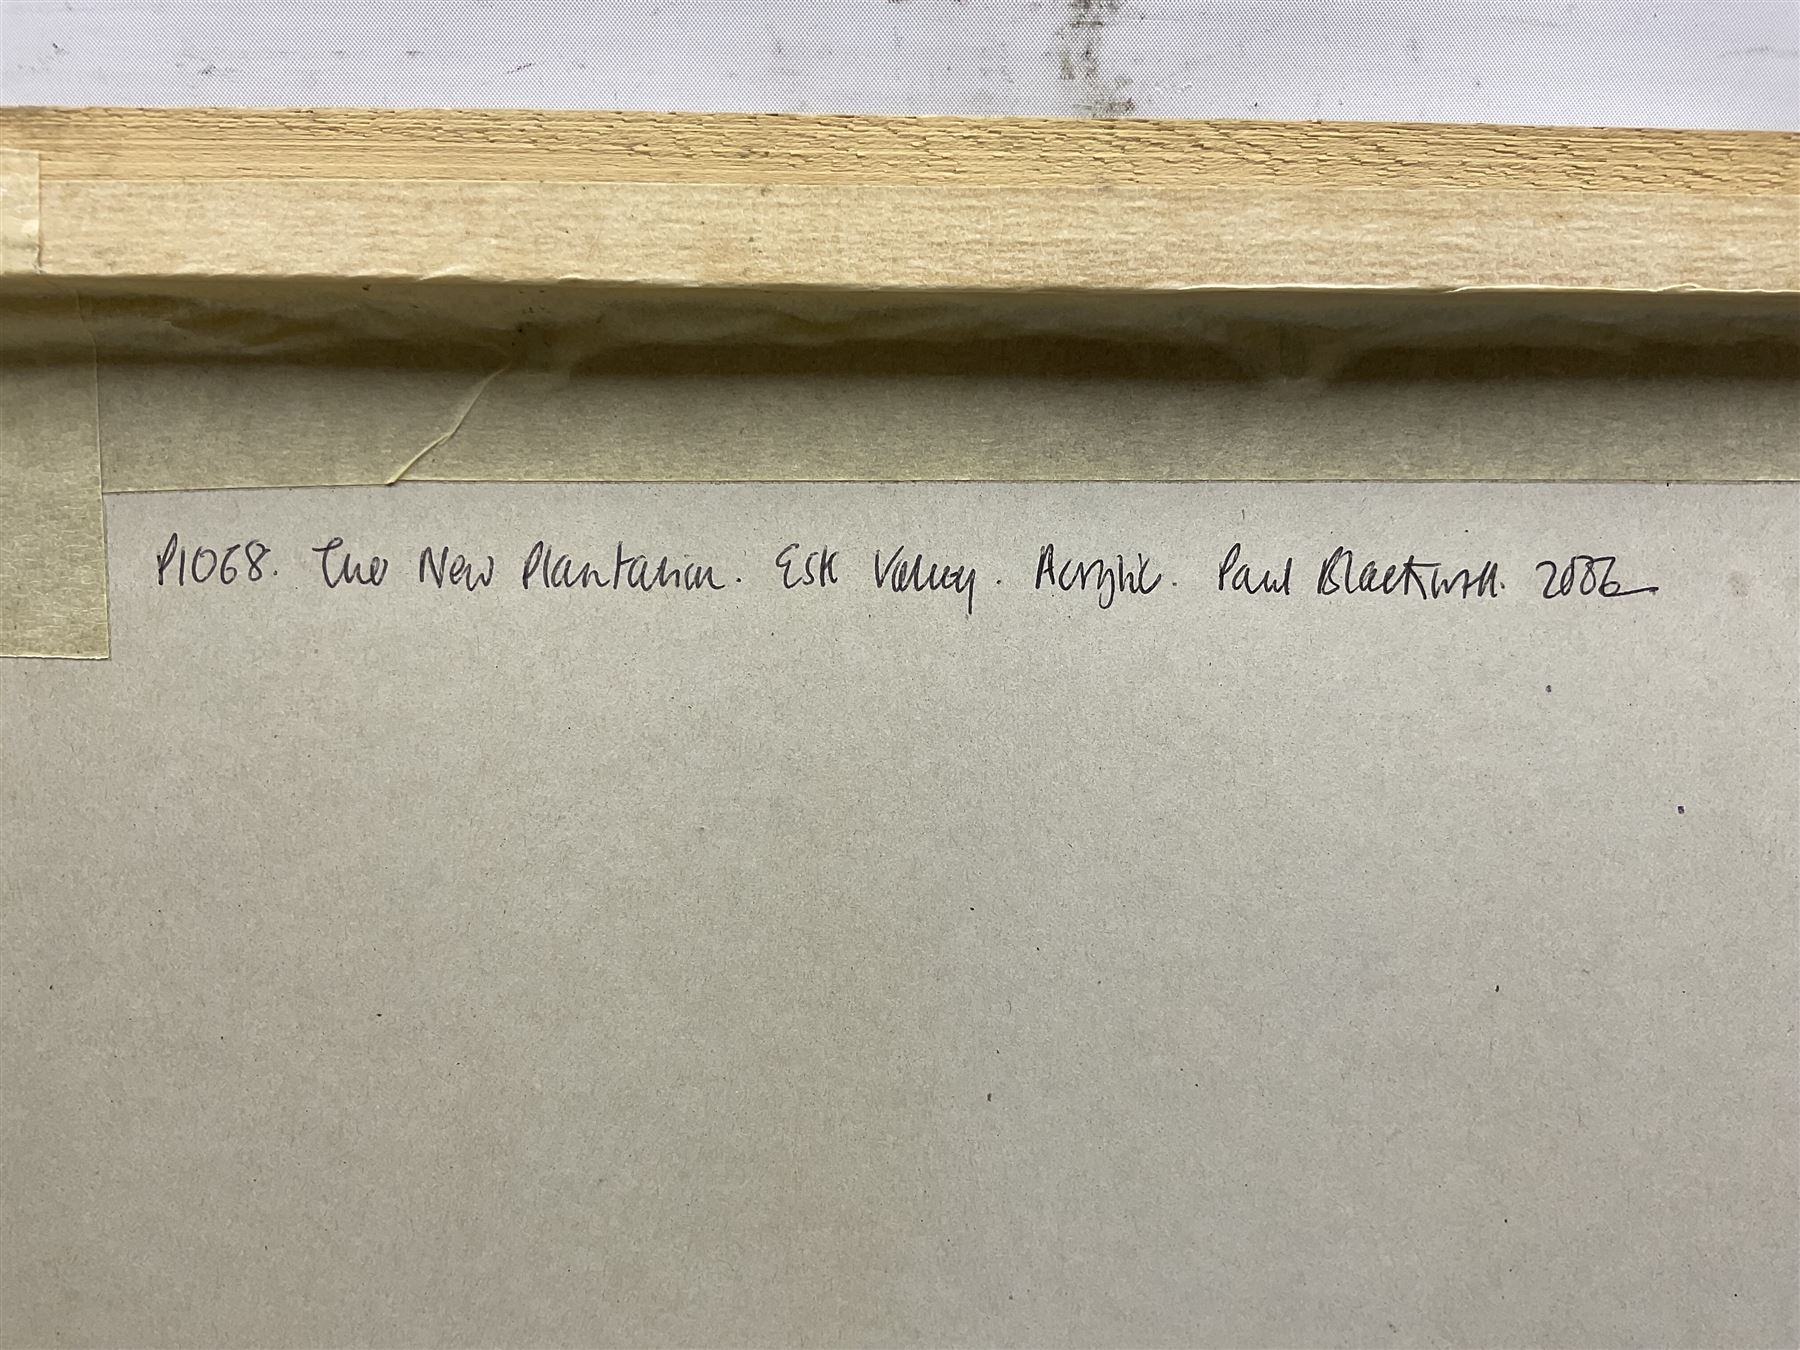 P1068. The New Plantation. Esk Valley. Acrylic. Paul Blackwell. 2006